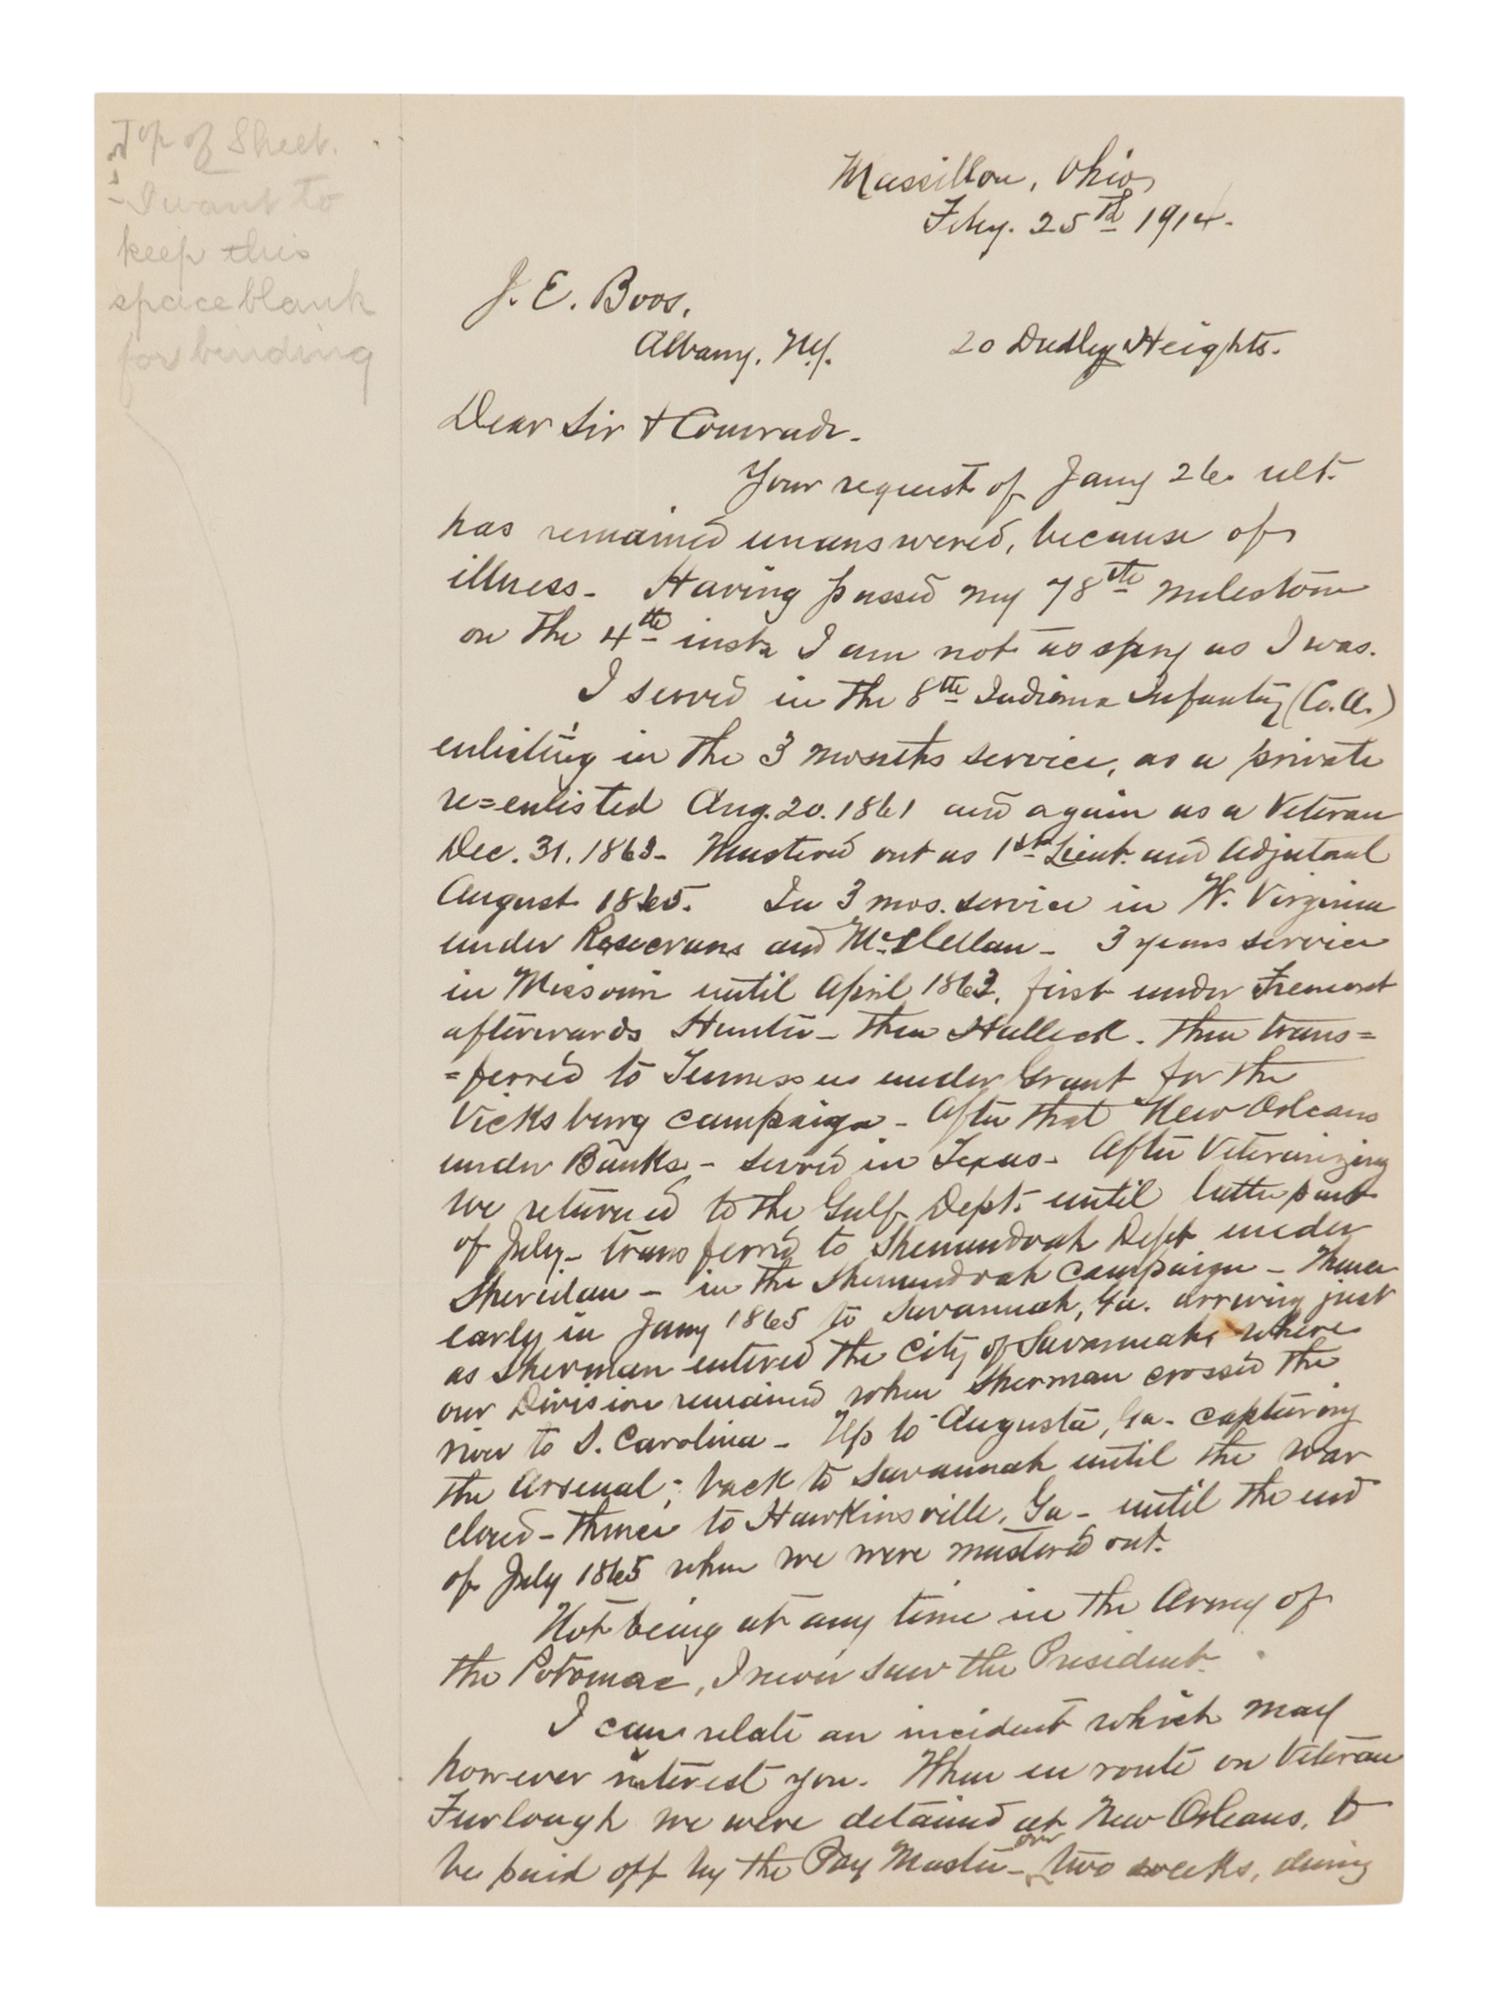 Top of Sheet.
I want to
keep this
space blank
for binding
Massillon, Ohio,
Feby. 25th 1914.
J. E. Boos,
Albany, N.Y. 20 Dudley Heights.
Dear Sir & Comrade.
Your request of Jany 26. ult.
has remained unanswered, because of
illness - Having passed my 78th milestone
on the 4th inst. I am not as spry as I was.
I served in the 8th Indiana Infantry (Co. A.)
enlisting in the 3 months service, as a private
re=enlisted Aug. 20. 1861 and again as a Veteran
Dec. 31. 1863 - Mustered out as 1st Lieut. and Adjutant
August 1865. In 3 mos. service in W. Virginia
under Rosecrans and McClellan - 3 years service
in Missouri until April 1863, first under Fremont
afterwards Hunter - then Halleck. Then trans=
=ferred to Tennessee under Grant for the
Vicksburg campaign - After that New Orleans
under Banks - served in Texas - After Veteranizing
we returned to the Gulf Dept. until latter part
of July - transferred to Shenandoah Dept under
Sheridan - in the Shenandoah campaign - Thence
early in Jany 1865 to Savannah, Ga. arriving just
as Sherman entered the city of Savannah, where
our Division remained when Sherman crossed the
river to S. Carolina - Up to Augusta, Ga - capturing
the Arsenal; back to Savannah until the war
closed - thence to Hawkinsville, Ga - until the end
of July 1865 when we were mustered out.
Not being at any time in the Army of
the Potomac, I never saw the President.
I can relate an incident which may
however interest you. When en route on Veteran
Furlough we were detained at New Orleans, to
be paid off by the Pay Master - over two weeks, during